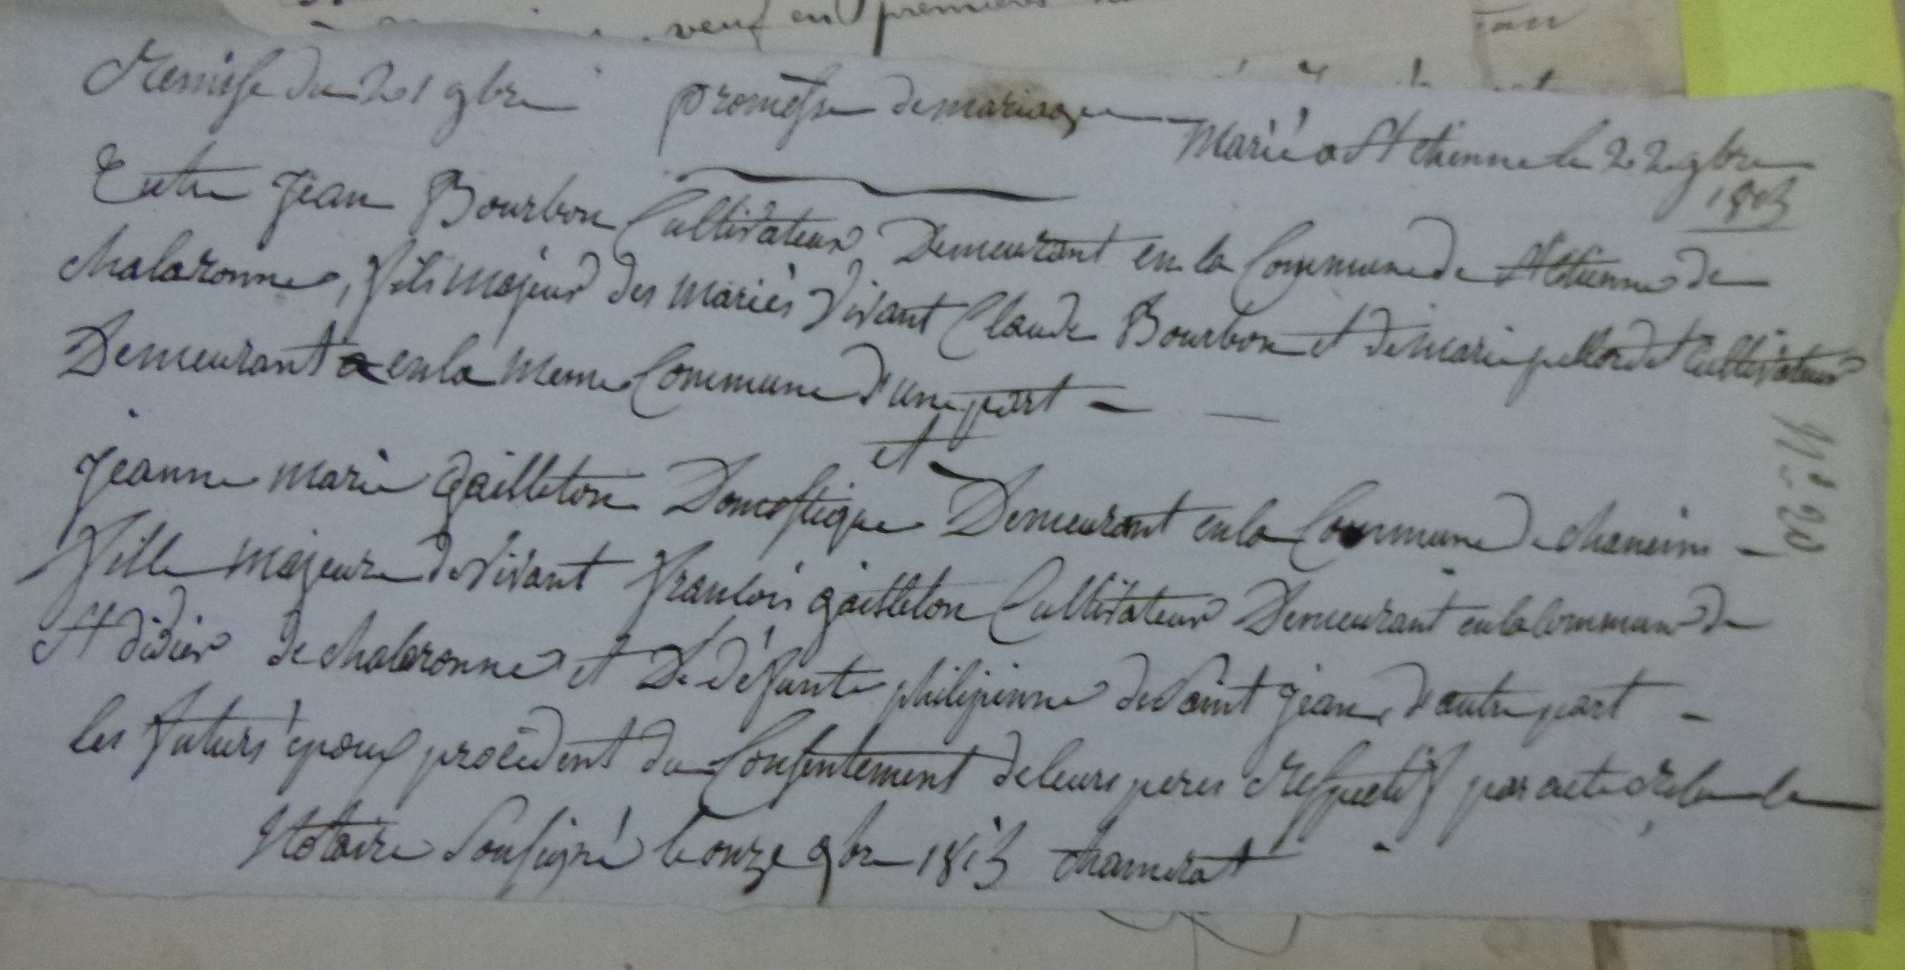 veuf en premieres
Remise du 21 9bre promesse de mariage
Marié a St Etienne le 22 9bre
1813
Entre Jean Bourbon Cultivateur Demeurant en la Commune de St Etienne de
chalaronne, fils majeur des mariés vivant Claude Bourbon et de marie Cultivateur
Demeurant en la meme Commune d'une part
et
Jeanne marie Gailleton Domestique Demeurant en la Commune de chaneins
fille majeure de vivant francois gailleton Cultivateur Demeurant en la Commune de
St didier de chalaronne et De défunte philipienne de Saint Jean, d'autre part
les futurs époux procédent du Consentement de leurs peres respectifs par acte le
Notaire Soussigné le onze 9bre 1813 chamerat
N° 20